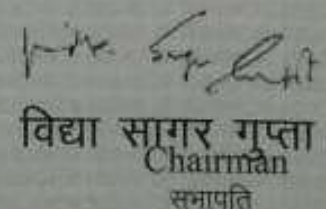 विद्या सागर गुप्ता
Chairman
सभापति